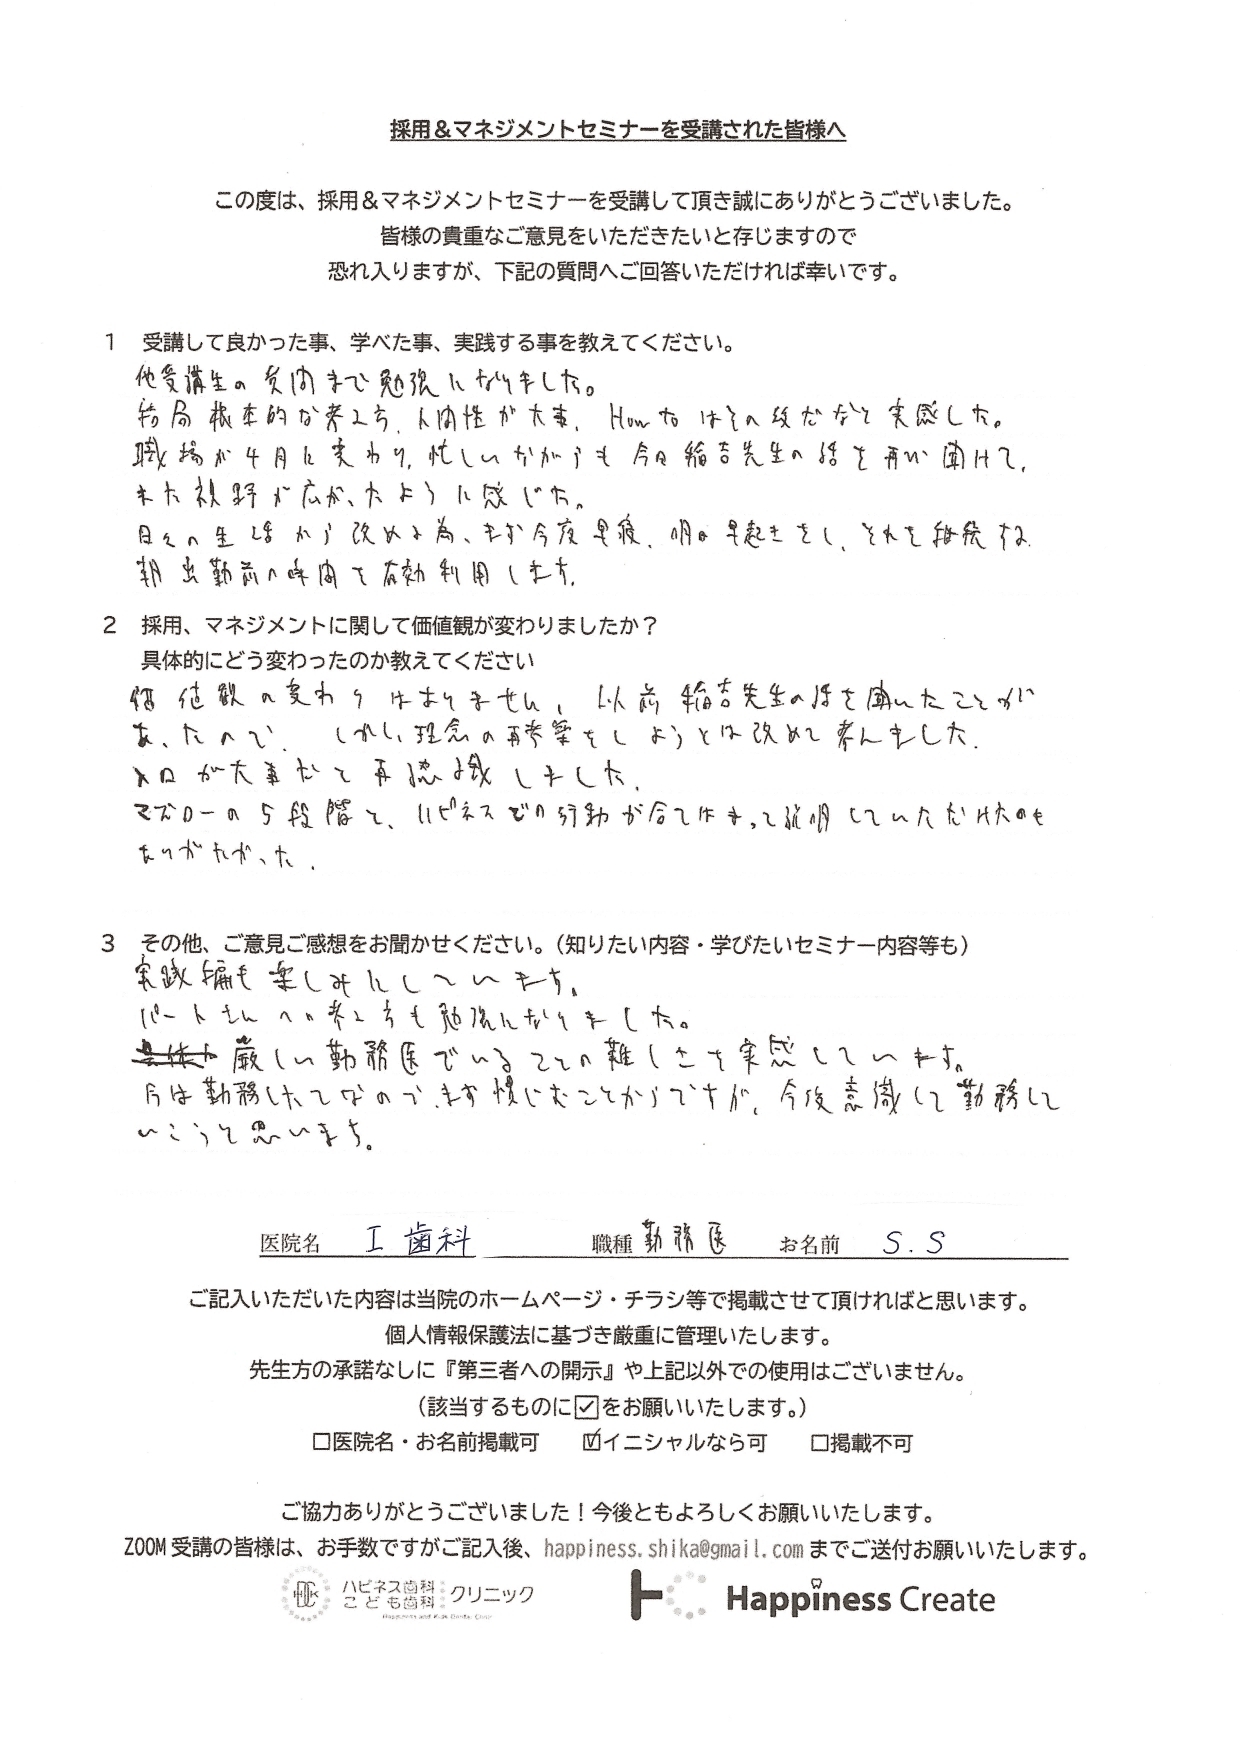 採用＆マネジメントセミナーを受講された皆様へ
この度は、採用＆マネジメントセミナーを受講して頂き誠にありがとうございました。
皆様の貴重なご意見をいただきたいと存じますので
恐れ入りますが、下記の質問へご回答いただければ幸いです。
1 受講して良かった事、学べた事、実践する事を教えてください。
他受講生の質問まで勉強になりました。
結局根本的な考え方、人間性が大事、How to はその後だなと実感した。
職場が4月に変わり、忙しいながらも今日稲吉先生の話を再び聞けて、
また視野が広がったように感じた。
日々の生活から改める為、まず今夜早寝、明日早起きをし、それを継続する
朝出勤前の時間を有効利用します。
2 採用、マネジメントに関して価値観が変わりましたか？
具体的にどう変わったのか教えてください
価値観の変わりはありません、以前稲吉先生の話を聞いたことが
あったので。しかし、理念の再考案をしようとは改めて考えました。
入口が大事だと再認識しました。
マズローの5段階で、ハピネスでの行動が合てはまって説明していただけたのも
ありがたかった.
3 その他、ご意見ご感想をお聞かせください。（知りたい内容・学びたいセミナー内容等も）
実践編も楽しみにしています。
パートさんへの考え方も勉強になりました。
厳しい勤務医でいることの難しさを実感しています。
今は勤務したてなので、まず慣れることからですが、今後意識して勤務して
いこうと思います。
医院名 I 歯科 職種 勤務医 お名前 S.S
ご記入いただいた内容は当院のホームページ・チラシ等で掲載させて頂ければと思います。
個人情報保護法に基づき厳重に管理いたします。
先生方の承諾なしに『第三者への開示』や上記以外での使用はございません。
（該当するものに☑をお願いいたします。）
☐医院名・お名前掲載可 ☑イニシャルなら可 ☐掲載不可
ご協力ありがとうございました！今後ともよろしくお願いいたします。
ZOOM 受講の皆様は、お手数ですがご記入後、happiness.shika@gmail.com までご送付お願いいたします。
ハピネス歯科 こども歯科 クリニック Happiness Create